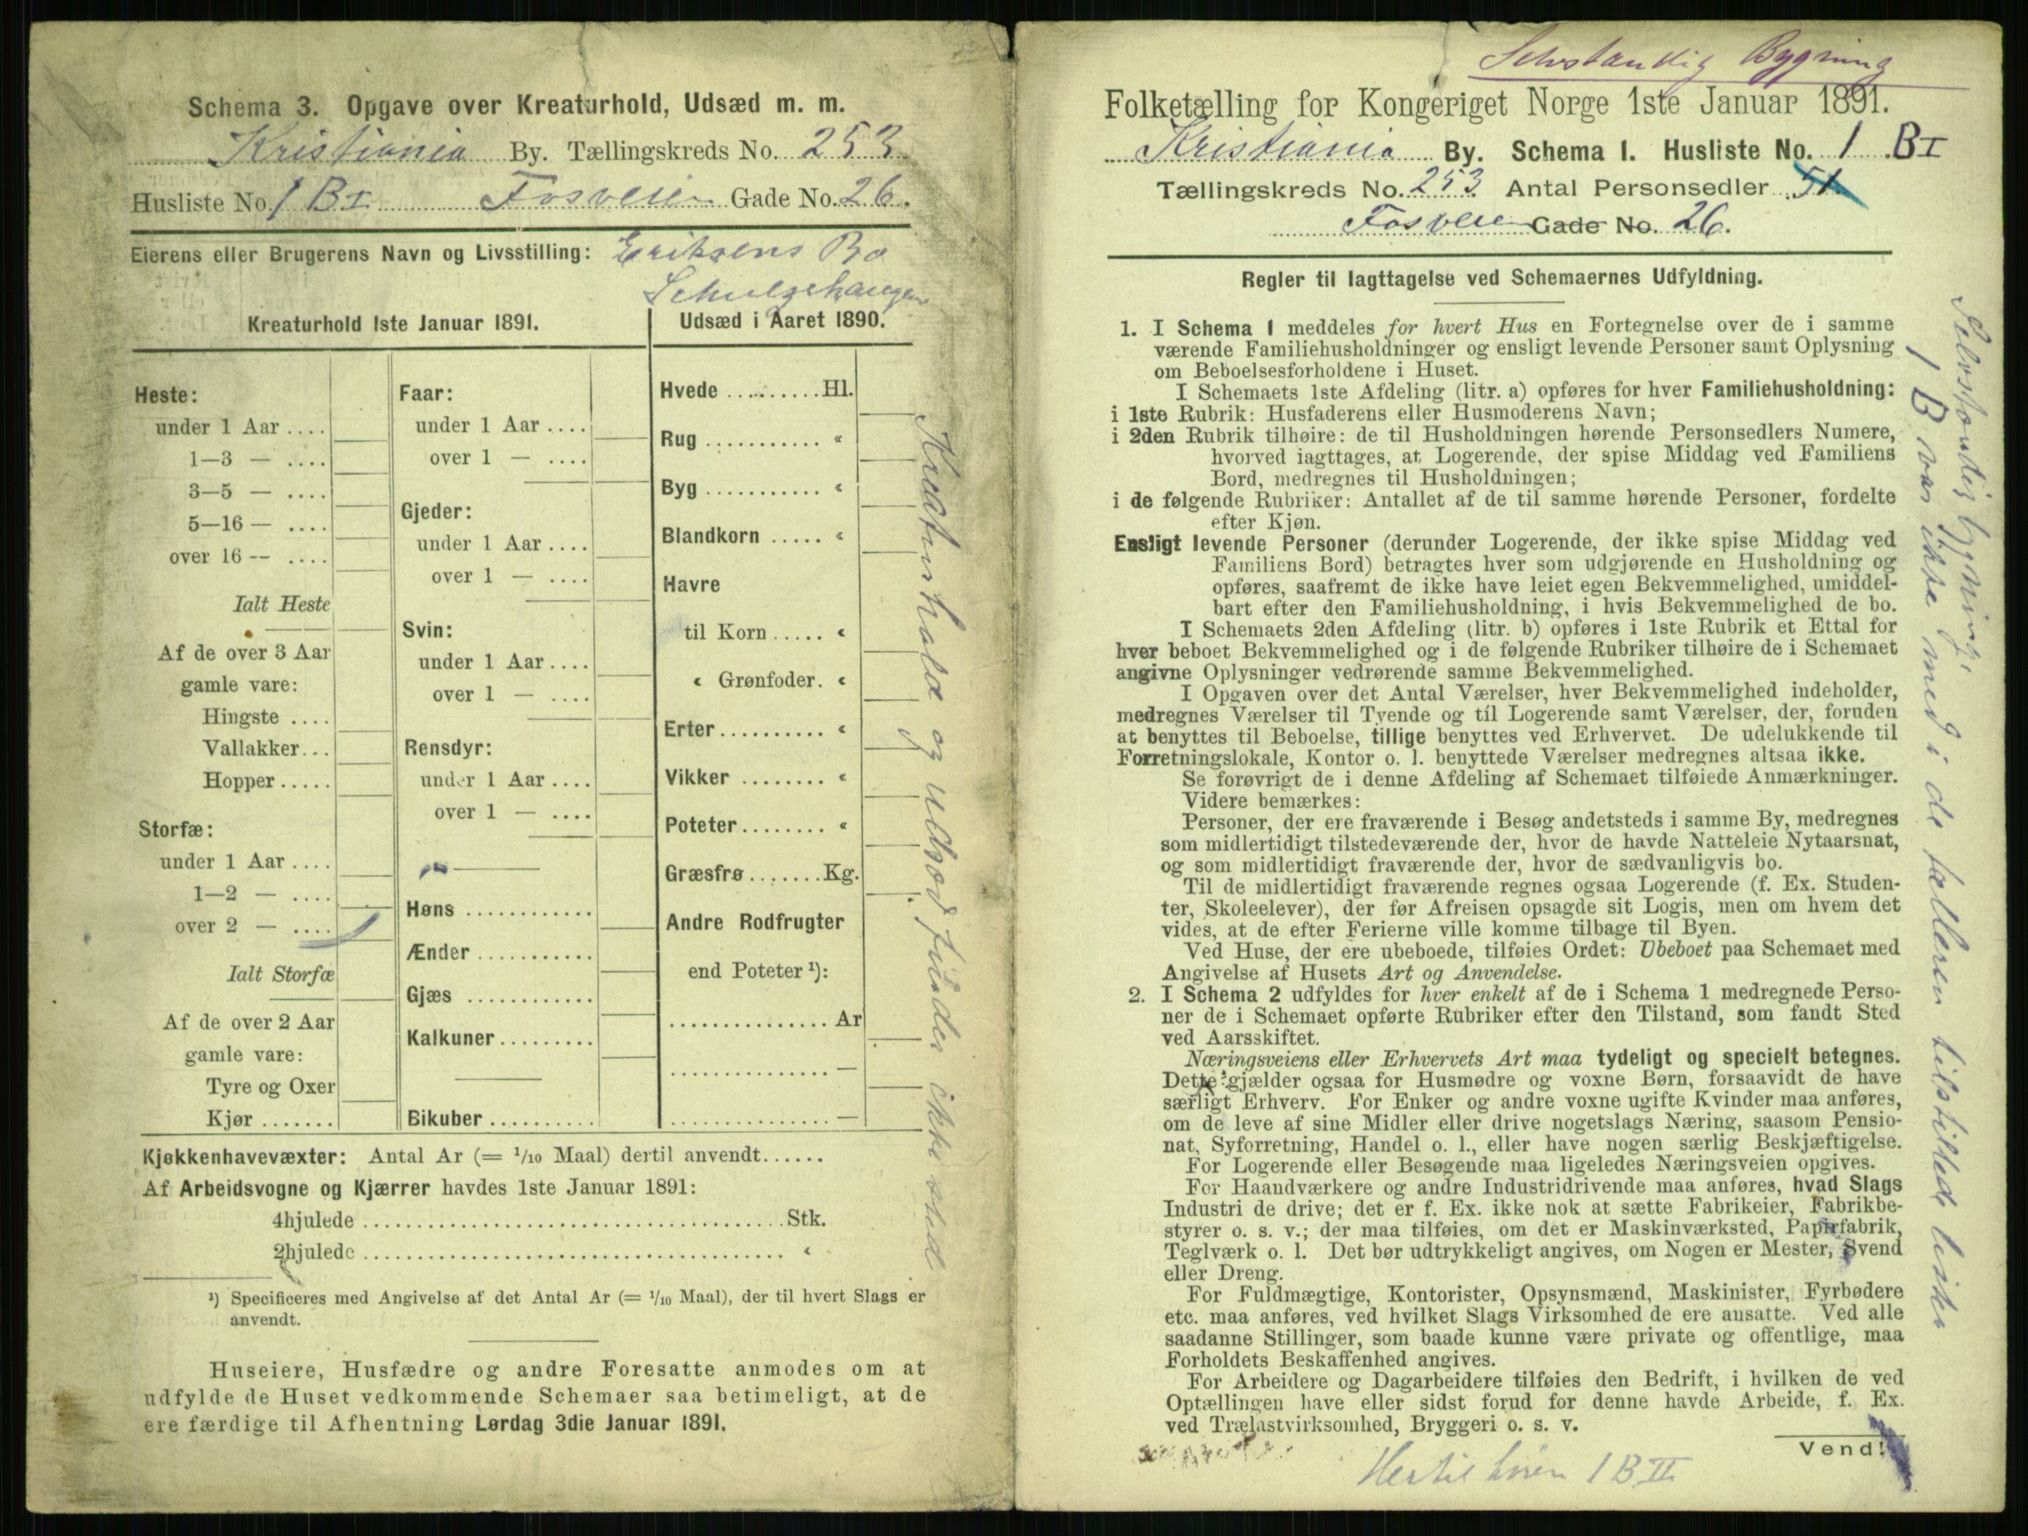 Schema 3. Opgave over Kreaturhold, Udsæd m. m.
Kristiania By. Tællingskreds No. 253
Husliste No. 1 B I Fosveien Gade No. 26.
Eierens eller Brugerens Navn og Livsstilling: Eriksens Bo
Schulzehaugen
Kreaturhold 1ste Januar 1891.
Heste:
under 1 Aar ....
1—3 — ....
3—5 — ....
5—16 — ....
over 16 -- ....
Ialt Heste
Af de over 3 Aar
gamle vare:
Hingste ....
Vallakker...
Hopper.....
Storfæ:
under 1 Aar ....
1—2 — ....
over 2 — ....
Ialt Storfæ
Af de over 2 Aar
gamle vare:
Tyre og Oxer
Kjør.......
Faar:
under 1 Aar ....
over 1 — ....
Gjeder:
under 1 Aar ....
over 1 — ....
Svin:
under 1 Aar ....
over 1 — ....
Rensdyr:
under 1 Aar ....
over 1 — ....
Høns ...........
Ænder ..........
Gjæs ...........
Kalkuner........
Bikuber.........
Udsæd i Aaret 1890.
Hvede .........Hl.
Rug ........... «
Byg ........... «
Blandkorn ..... «
Havre
til Korn ..... «
« Grønfoder. «
Erter.......... «
Vikker ........ «
Poteter........ «
Græsfrø.......Kg.
Andre Rodfrugter
end Poteter ¹):
............... Ar
............... —
............... —
Kreaturhold og udsæd finder ikke sted
Kjøkkenhavevæxter: Antal Ar (= 1/10 Maal) dertil anvendt......
Af Arbeidsvogne og Kjærrer havdes 1ste Januar 1891:
4hjulede ........................................Stk.
2hjulede ........................................ «
¹) Specificeres med Angivelse af det Antal Ar (= 1/10 Maal), der til hvert Slags er
anvendt.
Huseiere, Husfædre og andre Foresatte anmodes om at
udfylde de Huset vedkommende Schemaer saa betimeligt, at de
ere færdige til Afhentning Lørdag 3die Januar 1891.
Selvstændig Bygning
Folketælling for Kongeriget Norge 1ste Januar 1891.
Kristiania By. Schema I. Husliste No. 1 B I
Tællingskreds No. 253 Antal Personsedler 51
Fosveien Gade No. 26.
Regler til Iagttagelse ved Schemaernes Udfyldning.
1. I Schema 1 meddeles for hvert Hus en Fortegnelse over de i samme
værende Familiehusholdninger og ensligt levende Personer samt Oplysning
om Beboelsesforholdene i Huset.
I Schemaets 1ste Afdeling (litr. a) opføres for hver Familiehusholdning:
i 1ste Rubrik: Husfaderens eller Husmoderens Navn;
i 2den Rubrik tilhøire: de til Husholdningen hørende Personsedlers Numere,
hvorved iagttages, at Logerende, der spise Middag ved Familiens
Bord, medregnes til Husholdningen;
i de følgende Rubriker: Antallet af de til samme hørende Personer, fordelte
efter Kjøn.
Ensligt levende Personer (derunder Logerende, der ikke spise Middag ved
Familiens Bord) betragtes hver som udgjørende en Husholdning og
opføres, saafremt de ikke have leiet egen Bekvemmelighed, umiddel-
bart efter den Familiehusholdning, i hvis Bekvemmelighed de bo.
I Schemaets 2den Afdeling (litr. b) opføres i 1ste Rubrik et Ettal for
hver beboet Bekvemmelighed og i de følgende Rubriker tilhøire de i Schemaet
angivne Oplysninger vedrørende samme Bekvemmelighed.
I Opgaven over det Antal Værelser, hver Bekvemmelighed indeholder,
medregnes Værelser til Tyende og til Logerende samt Værelser, der, foruden
at benyttes til Beboelse, tillige benyttes ved Erhvervet. De udelukkende til
Forretningslokale, Kontor o. l. benyttede Værelser medregnes altsaa ikke.
Se forøvrigt de i denne Afdeling af Schemaet tilføiede Anmærkninger.
Videre bemærkes:
Personer, der ere fraværende i Besøg andetsteds i samme By, medregnes
som midlertidigt tilstedeværende der, hvor de havde Natteleie Nytaarsnat,
og som midlertidigt fraværende der, hvor de sædvanligvis bo.
Til de midlertidigt fraværende regnes ogsaa Logerende (f. Ex. Studen-
ter, Skoleelever), der før Afreisen opsagde sit Logis, men om hvem det
vides, at de efter Ferierne ville komme tilbage til Byen.
Ved Huse, der ere ubeboede, tilføies Ordet: Ubeboet paa Schemaet med
Angivelse af Husets Art og Anvendelse.
2. I Schema 2 udfyldes for hver enkelt af de i Schema 1 medregnede Perso-
ner de i Schemaet opførte Rubriker efter den Tilstand, som fandt Sted
ved Aarsskiftet.
Næringsveiens eller Erhvervets Art maa tydeligt og specielt betegnes.
Dette gjælder ogsaa for Husmødre og voxne Børn, forsaavidt de have
særligt Erhverv. For Enker og andre voxne ugifte Kvinder maa anføres,
om de leve af sine Midler eller drive nogetslags Næring, saasom Pensio-
nat, Syforretning, Handel o. l., eller have nogen særlig Beskjæftigelse.
For Logerende eller Besøgende maa ligeledes Næringsveien opgives.
For Haandværkere og andre Industridrivende maa anføres, hvad Slags
Industri de drive; det er f. Ex. ikke nok at sætte Fabrikeier, Fabrikbe-
styrer o. s. v.; der maa tilføies, om det er Maskinværksted, Papirfabrik,
Teglværk o. l. Det bør udtrykkeligt angives, om Nogen er Mester, Svend
eller Dreng.
For Fuldmægtige, Kontorister, Opsynsmænd, Maskinister, Fyrbødere
etc. maa anføres, ved hvilket Slags Virksomhed de ere ansatte. Ved alle
saadanne Stillinger, som baade kunne være private og offentlige, maa
Forholdets Beskaffenhed angives.
For Arbeidere og Dagarbeidere tilføies den Bedrift, i hvilken de ved
Optællingen have eller sidst forud for denne havde Arbeide, f. Ex.
ved Trælastvirksomhed, Bryggeri o. s. v.
Vend!
Hertil hører 1 B II
Selvstændig bygning,
1 B var ikke med i de tælleren tilstillede lister